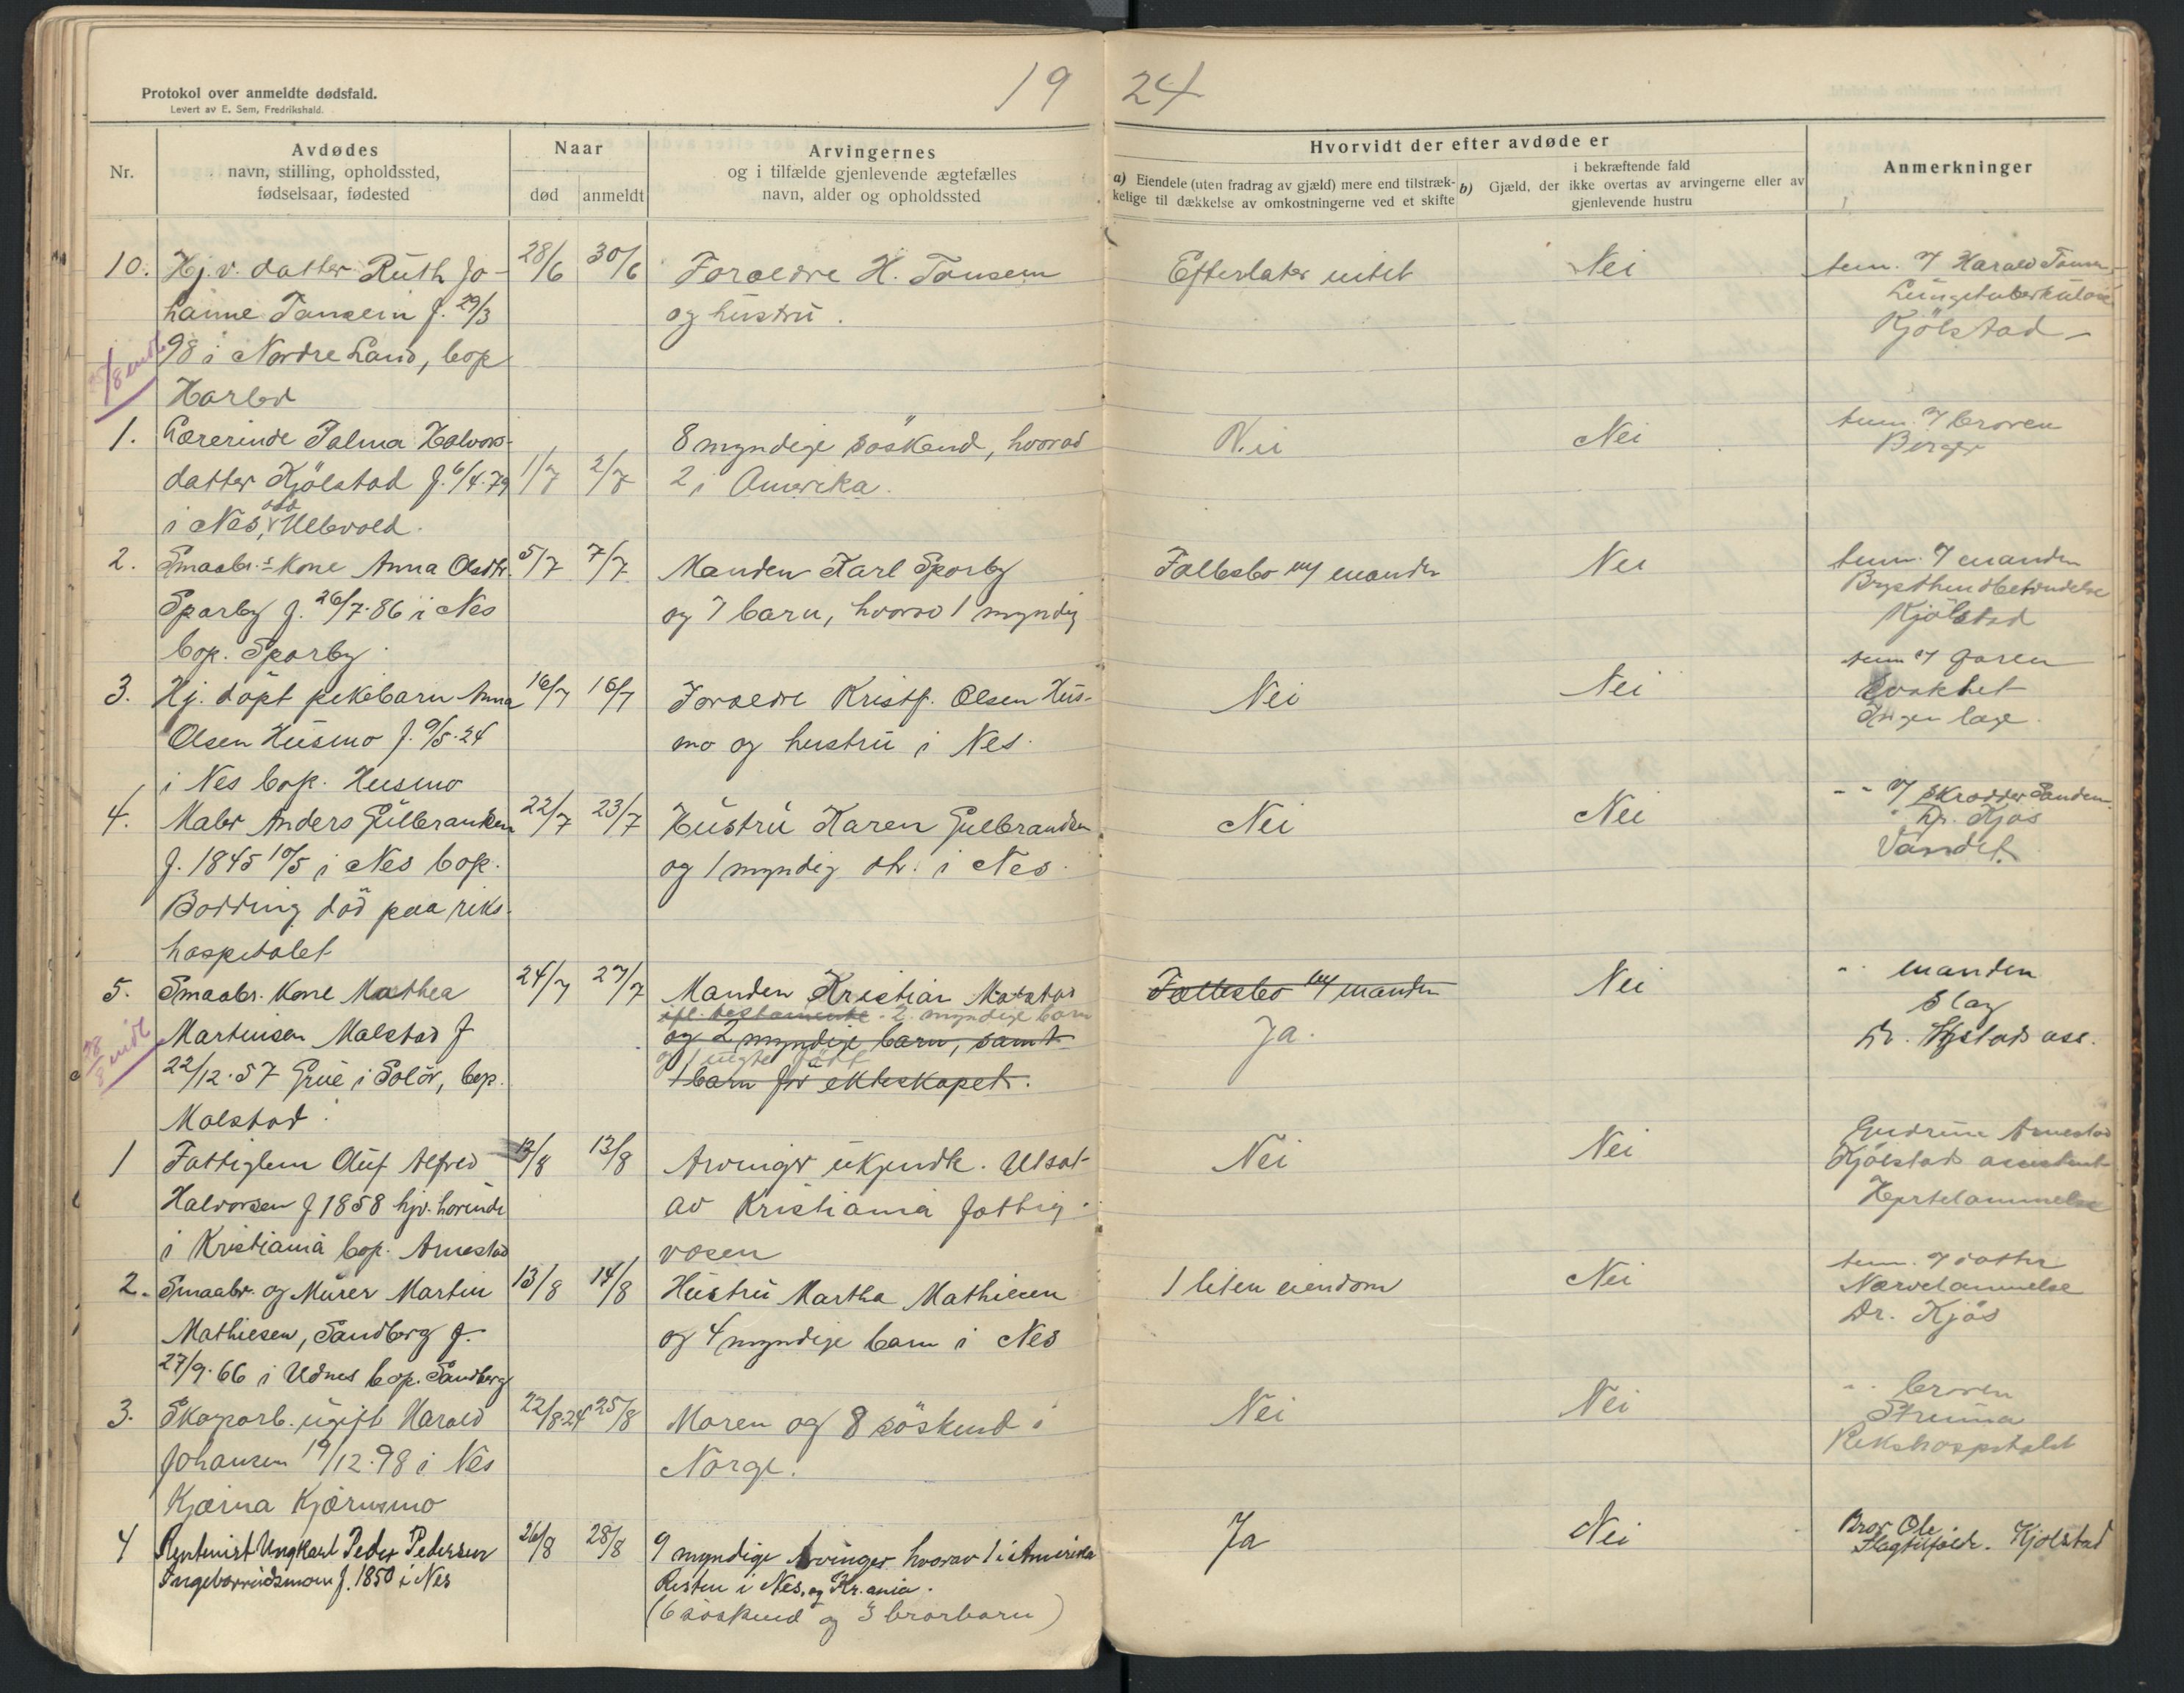 Protokol over anmeldte dødsfald.
Levert av E. Sem, Fredrikshald.
19 24
Nr.
Avdødes
navn, stilling, opholdssted,
fødselsaar, fødested
Naar
død
anmeldt
Arvingernes
og i tilfælde gjenlevende ægtefælles
navn, alder og opholdssted
Hvorvidt der efter avdøde er
a) Eiendele (uten fradrag av gjæld) mere end tilstræk-
kelige til dækkelse av omkostningerne ved et skifte
i bekræftende fald
b) Gjæld, der ikke overtas av arvingerne eller av
gjenlevende hustru
Anmerkninger
10. Hj. v. datter Ruth Jo-
hanne Tansem f. 29/3
98 i Nordre Land, bop
28/6 30/6
Forældre H. Tansem
og hustru.
Efterlater intet
Nei
Harald
Lungetuberkulose
Kjölstad
1. Lærerinde Palma Halvors-
datter Kjölstad f. 6/4.79
i Nes, Ullevold.
1/7 2/7
8 myndige söskend, hvorav
2 i Amerika.
Nei
Nei
broren
Birger
2. Smaabr.s kone Anna Olsdtr.
Sparby f. 26/7.86 i Nes
bop. Sparby
5/7 7/7
Manden Karl Sparby
og 7 barn, hvorav 1 myndig
Fællesbo m/ manden
Nei
manden
Brysthindebetændelse
Kjölstad
3. Hj. döpt pikebarn Anna
Olsen Husmo f. 9/5.24
i Nes bop. Husmo
16/7 16/7
Forældre Kristf. Olsen Hus-
mo og hustru i Nes.
Nei
Nei
faren
Svakhet
Ingen læge.
4. Maler Anders Gulbrandsen
f. 1845 10/5 i Nes bop.
Bodding död paa riks-
hospitalet
22/7 23/7
Hustru Karen Gulbrandsen
og 1 myndig dtr. i Nes.
Nei
Nei
Dr. Kjös
5. Smaabr. kone Mathea
Martinsen Malstad f
22/12.57 Grue i Solör, bop.
Malstad.
24/7 27/7
Manden Kristian Malstad
ifl. testamente. 2. myndige barn
og 2 myndige barn, samt
1 barn för ekteskapet.
Fællesbo m/ manden
Ja.
Nei
manden
Slag
1 Fattiglem Oluf Alfred
Halvorsen f 1858 hjv. hörende
i Kristiania bop. Arnestad
13/8
Arvinger ukjendte. Utsat
av Kristiania fattig-
væsen
Nei
Nei
Gudrun Arnestad
Kjölstads assistent
Hjertelammelse
2. Smaabr. og Murer Martin
Mathiesen, Sandberg f.
27/9.66 i Udnes bop. Sandberg
13/8 14/8
Hustru Martha Mathiesen
og 4 myndige barn i Nes
1 liten eiendom
Nei
datter
Nervelammelse
Dr. Kjös
3. Skogarb. ugift Harald
Johansen 19/12.98 i Nes
Kjærna Kjærnsmo
22/8 24 25/8
Moren og 8 söskend i
Norge.
Nei
Nei
broren
Struma
Rikshospitalet
4 Rentenist Ungkarl Peder Pedersen
f. 1850 i Nes
26/8 28/8
9 myndige Arvinger hvorav 1 i Amerika
Resten i Nes, og Kr.ania.
(6 söskend og 3 brorbarn)
Ja
Nei
Bror Ole
Slagtilfælde. Kjölstad